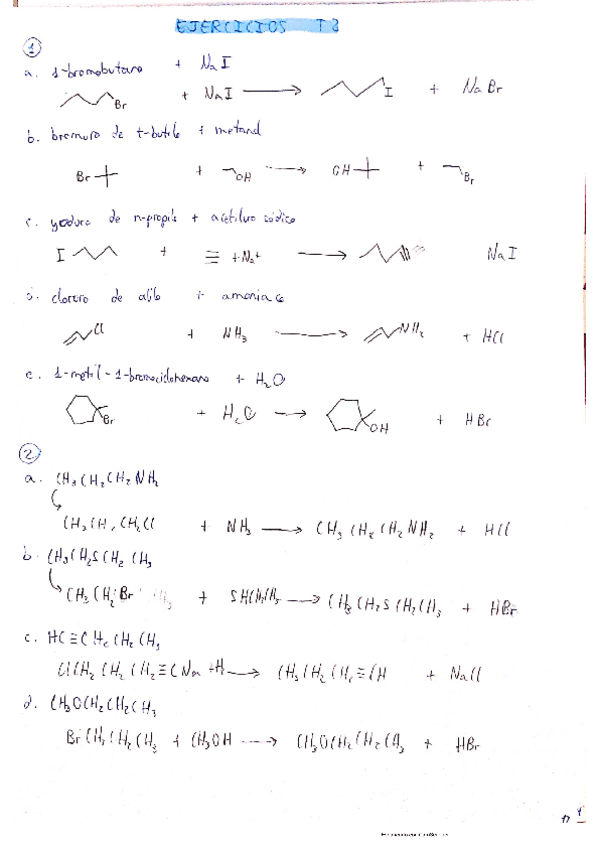 EJERCICIOS T3
1
a. 1-bromobutano + NaI
Br + NaI → I + NaBr
b. bromuro de t-butilo + metanol
Br + OH → OH + Br
c. yoduro de n-propilo + acetiluro sódico
I + ≡ + Na+ → NaI
d. cloruro de alilo + amoniaco
Cl + NH3 → NH2 + HCl
e. 1-metil-1-bromociclohexano + H2O
Br + H2O → OH + HBr
2
a. CH3CH2CH2NH2
CH3CH2CH2Cl + NH3 → CH3CH2CH2NH2 + HCl
b. CH3CH2SCH2CH3
CH3CH2Br + SHCH2CH3 → CH3CH2SCH2CH3 + HBr
c. HC≡CCH2CH2CH3
+ NaCl
d. CH3OCH2CH2CH3
BrCH2CH2CH3 + CH3OH → CH3OCH2CH2CH3 + HBr